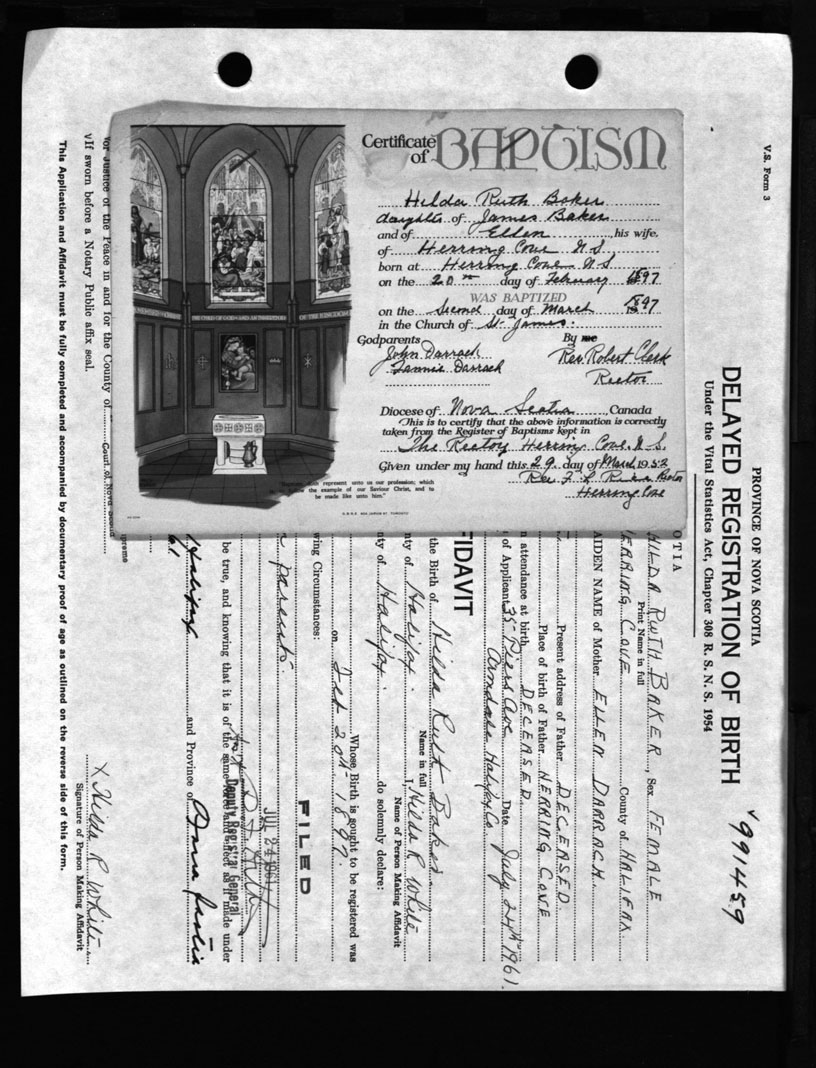 Certificate of BAPTISM
Hilda Ruth Baker
daughter of James Baker
and of Ellen, his wife,
of Herring Cove N S
born at Herring Cove N S
on the 20th day of February 1897
WAS BAPTIZED
on the Second day of March 1897
in the Church of St James.
Godparents By
John Darrach Rev. Robert Clark
Fannie Darrach Rector
Diocese of Nova Scotia, Canada
This is to certify that the above information is correctly
taken from the Register of Baptisms kept in
The Rectory Herring Cove. N. S.
Given under my hand this 29. day of March 1952
Rector
Herring Cove
"Baptism doth represent unto us our profession; which
is to follow the example of our Saviour Christ, and to
be made like unto him."
V.S. Form 3
PROVINCE OF NOVA SCOTIA
DELAYED REGISTRATION OF BIRTH
991459
Under the Vital Statistics Act, Chapter 308 R. S. N. S. 1954
OTIA
HILDA RUTH BAKER, Sex FEMALE
Print Name in full
ERRING COVE County of HALIFAX
AIDEN NAME of Mother ELLEN DARRACH.
Present address of Father DECEASED
Place of birth of Father HERRING COVE
n attendance at birth DECEASED.
of Applicant 35 Piers Ave Date July 24th 1961.
Armdale Halifax Co.
FIDAVIT
the Birth of Hilda Ruth Baker
Name in full
nty of Halifax. I, Hilda R White
Name of Person Making Affidavit
nty of Halifax. do solemnly declare:
Whose Birth is sought to be registered was
on Feb 20th 1897.
wing Circumstances:
FILED
parents.
JUL 24 1961
Deputy Registrar General
be true, and knowing that it is of the same force and effect as if made under
Halifax and Province of Nova Scotia
61
preme
Court of Nova Scotia
vor Justice of the Peace in and for the County of
vIf sworn before a Notary Public affix seal.
X Hilda R White
Signature of Person Making Affidavit
This Application and Affidavit must be fully completed and accompanied by documentary proof of age as outlined on the reverse side of this form.